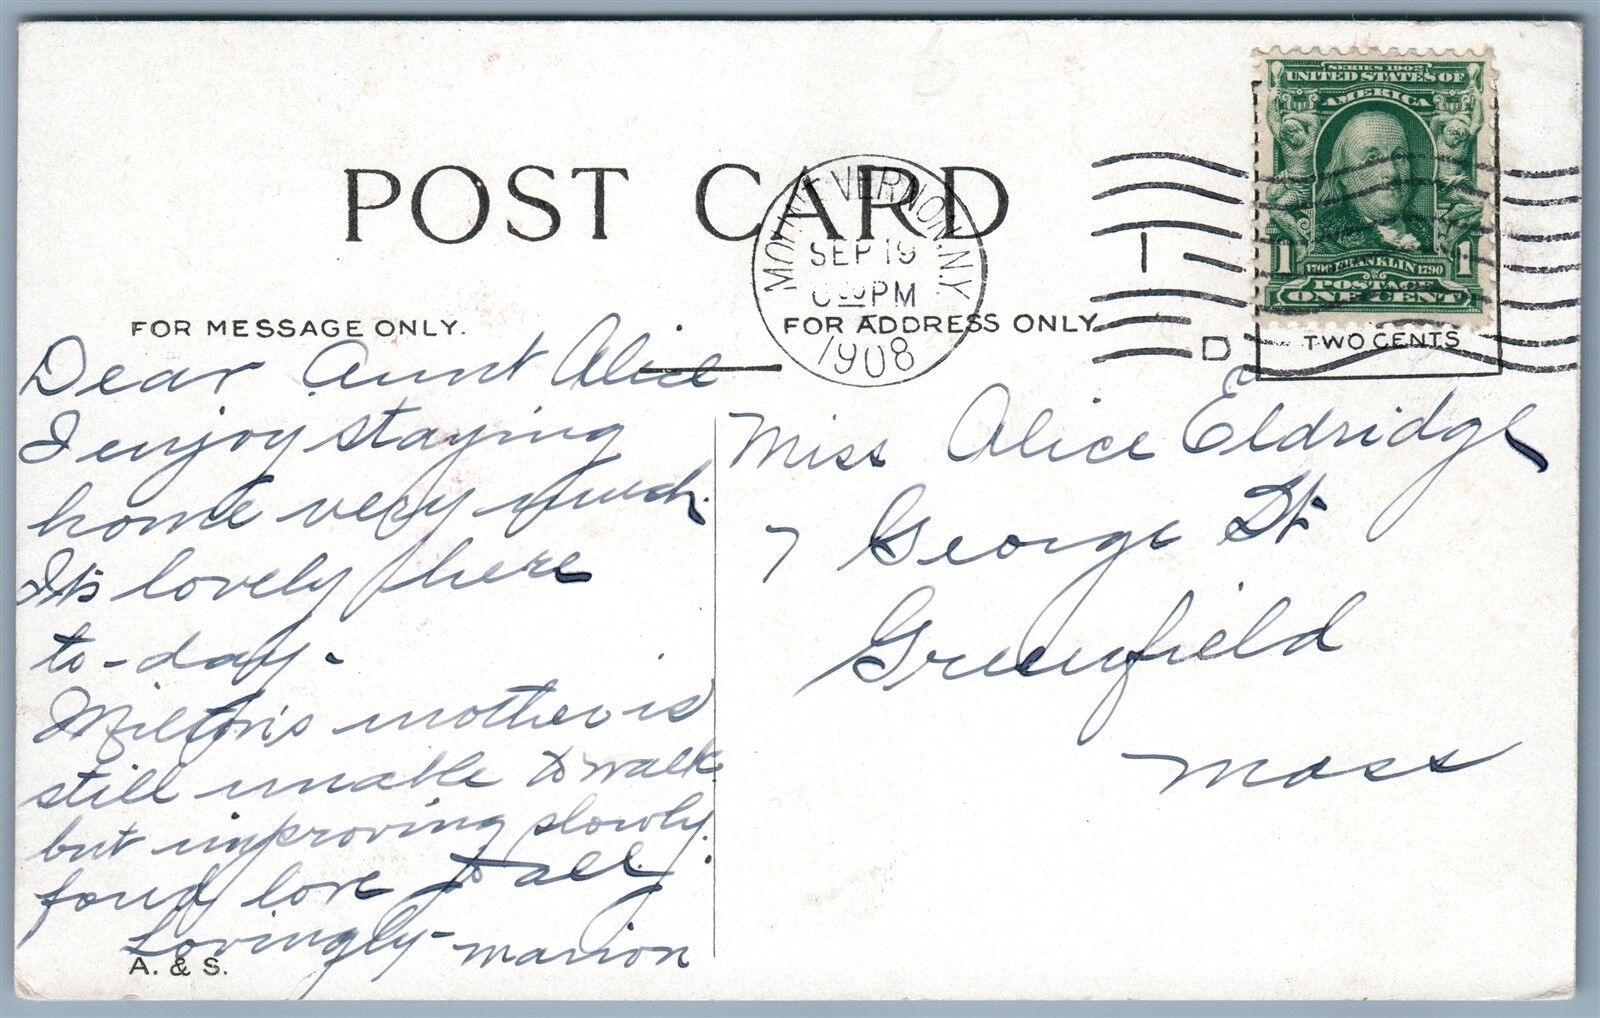 SERIES 1902
UNITED STATES OF
AMERICA
1 1
1706 FRANKLIN 1790
POSTAGE
ONE CENT
POST CARD
MOUNT VERNON, N.Y.
SEP 19
PM
1908
1
D
TWO CENTS
FOR MESSAGE ONLY.
FOR ADDRESS ONLY
Dear Aunt Alice
I enjoy staying
home very much.
It's lovely here
to-day.
Milton's mother is
still unable to walk
but improving slowly.
fond love to all.
Lovingly- Marion
A. & S.
Miss Alice Eldridge
7 George St.
Greenfield
Mass